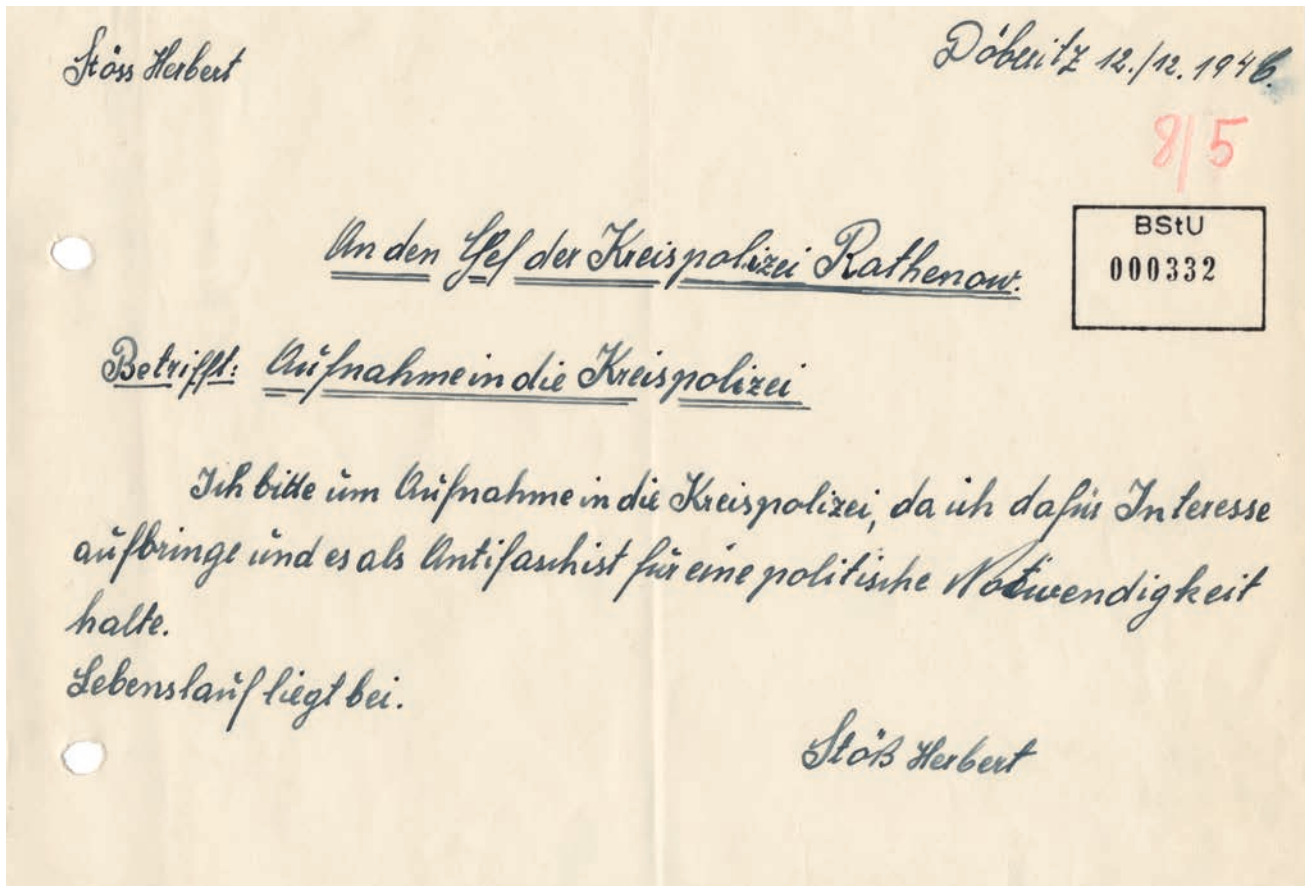 Stöss Herbert
Döberitz 12./12. 1946.
8/5
BStU
000332
An den Chef der Kreispolizei Rathenow.
Betrifft: Aufnahme in die Kreispolizei
Ich bitte um Aufnahme in die Kreispolizei, da ich dafür Interesse
aufbringe und es als Antifaschist für eine politische Notwendigkeit
halte.
Lebenslauf liegt bei.
Stöß Herbert